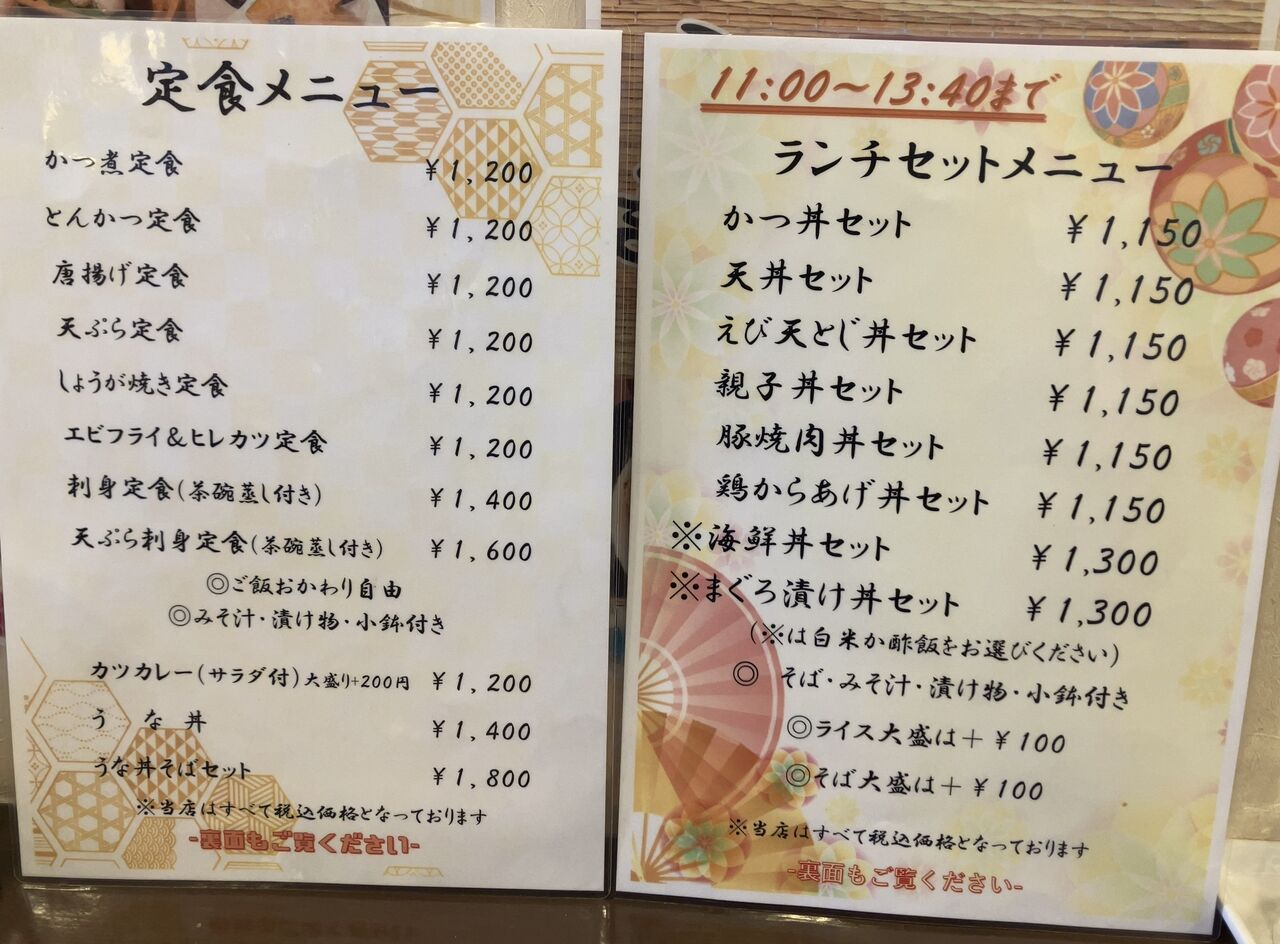 定食メニュー
かつ煮定食 ¥1,200
とんかつ定食 ¥1,200
唐揚げ定食 ¥1,200
天ぷら定食 ¥1,200
しょうが焼き定食 ¥1,200
エビフライ&ヒレカツ定食 ¥1,200
刺身定食(茶碗蒸し付き) ¥1,400
天ぷら刺身定食(茶碗蒸し付き) ¥1,600
◎ご飯おかわり自由
◎みそ汁・漬け物・小鉢付き
カツカレー(サラダ付)大盛り+200円 ¥1,200
うな丼 ¥1,400
うな丼そばセット ¥1,800
※当店はすべて税込価格となっております
-裏面もご覧ください-
11:00〜13:40まで
ランチセットメニュー
かつ丼セット ¥1,150
天丼セット ¥1,150
えび天とじ丼セット ¥1,150
親子丼セット ¥1,150
豚焼肉丼セット ¥1,150
鶏からあげ丼セット ¥1,150
※海鮮丼セット ¥1,300
※まぐろ漬け丼セット ¥1,300
(※は白米か酢飯をお選びください)
◎ そば・みそ汁・漬け物・小鉢付き
◎ライス大盛は+¥100
◎そば大盛は+¥100
※当店はすべて税込価格となっております
-裏面もご覧ください-